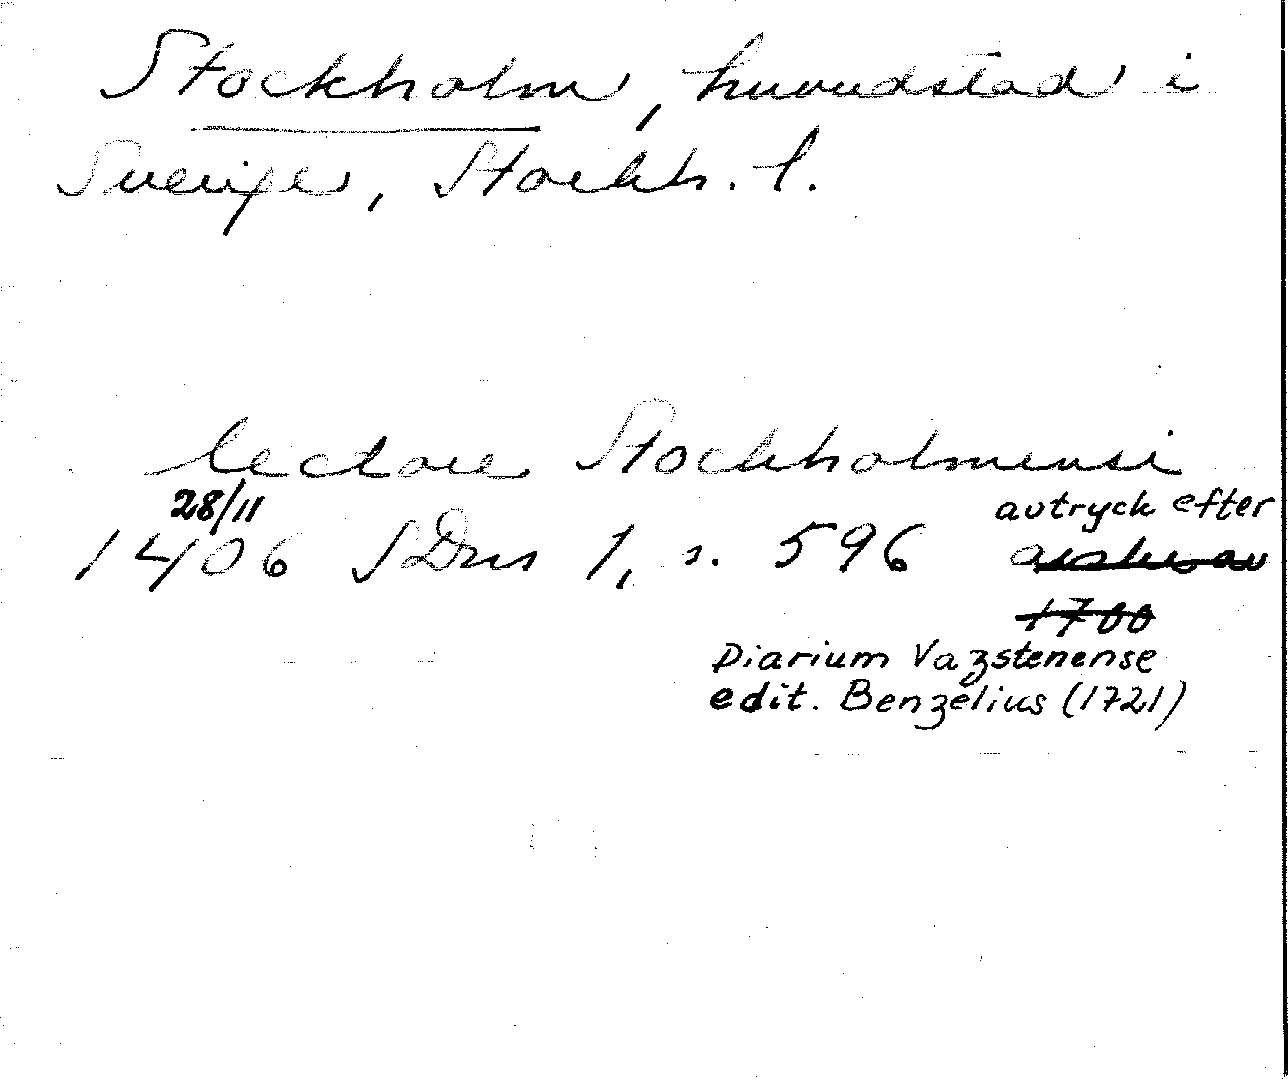 Stockholm, huvudstad i
Sverige, Stockh. l.
lectore Stockholmensi
28/11
1406 SDns 1, s. 596 avtryck efter
1700
Diarium Vazstenense
edit. Benzelius (1721)